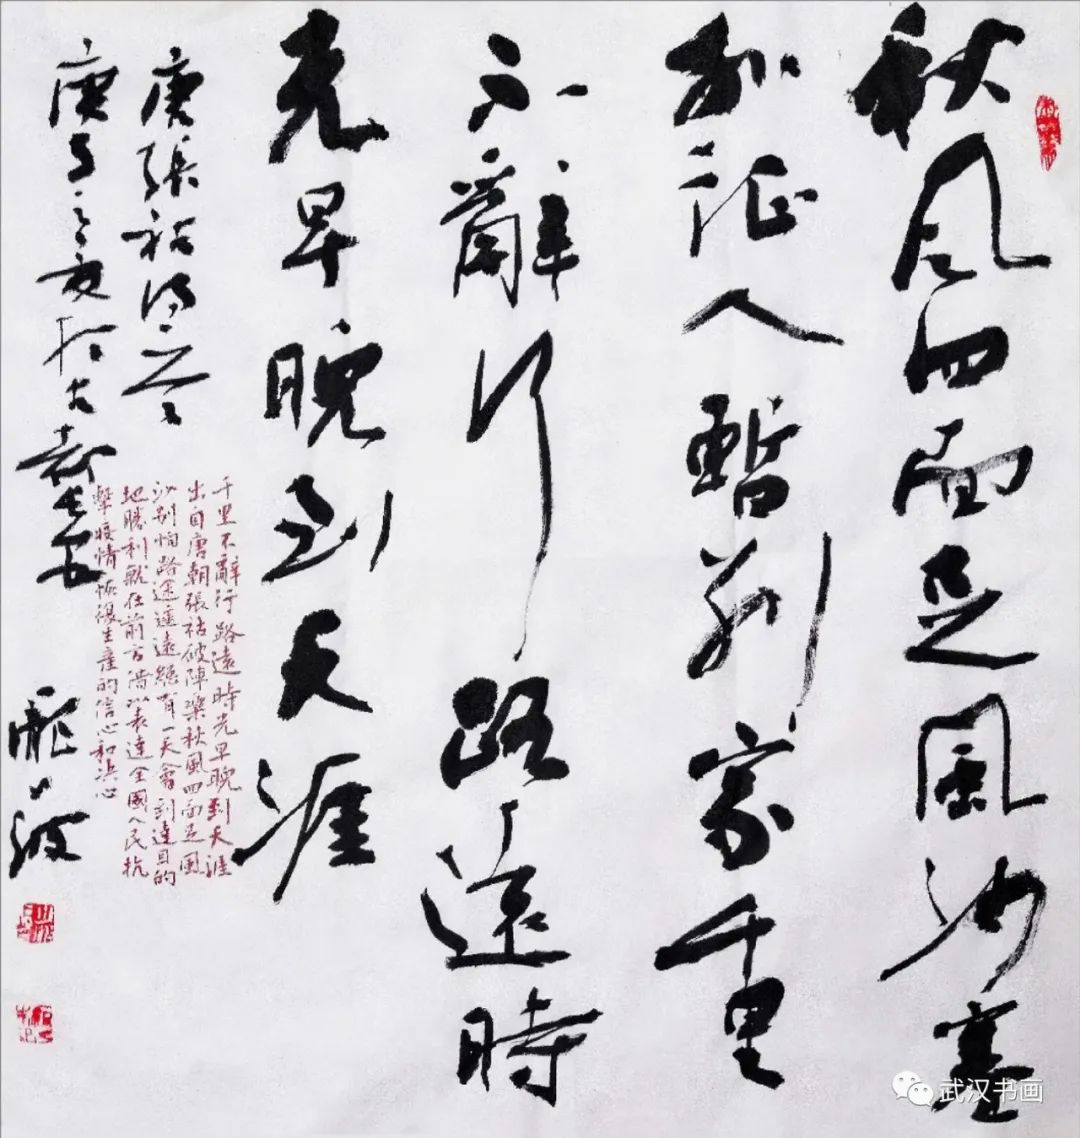 秋风四面足風沙塞
外征人暫別家千里
不辭行路遠時
光早晚到天涯
唐張祜詩
庚子之夏於古都長安
龐波
千里不辭行路遠時光早晚到天涯
出自唐朝張祜破陣樂秋風四面足風
沙別怕路途遙遠總有一天會到達目的
地勝利就在前方借以表達全國人民抗
擊疫情恢復生產的信心和決心
武汉书画